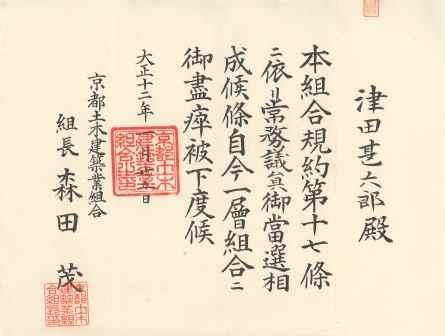 津田甚六郎殿
本組合規約第十七條
ニ依リ常務議員御當選相
成候條自今一層組合ニ
御盡瘁被下度候
大正十二年一月廿五日
京都土木建築業組合
組長 森田 茂